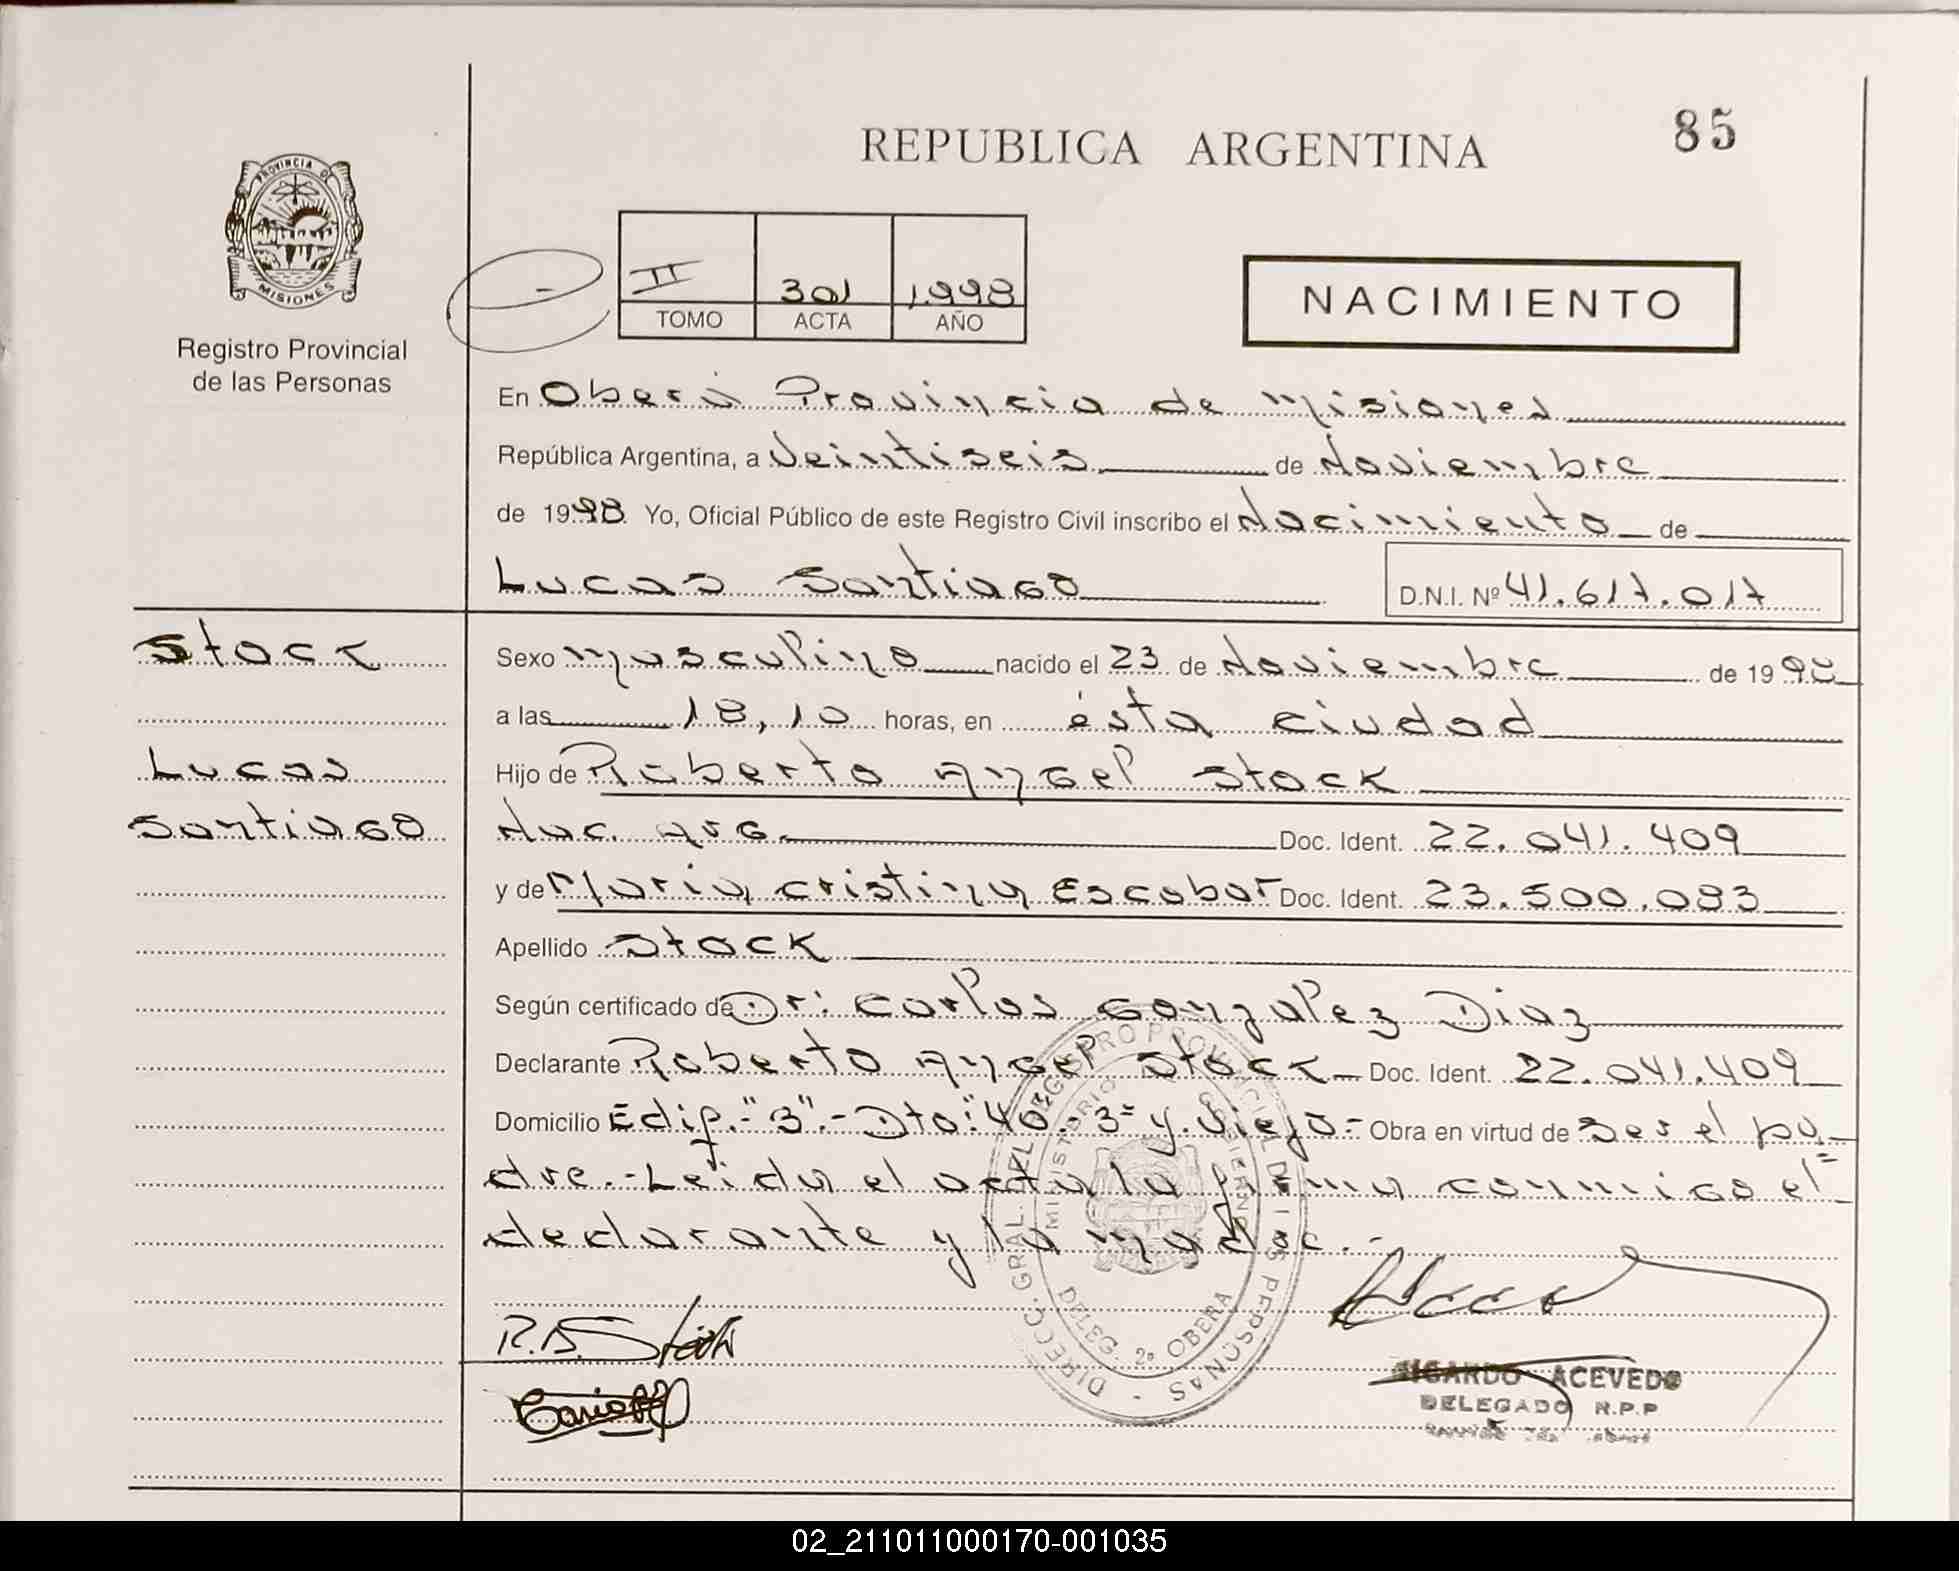 85
REPUBLICA ARGENTINA
PROVINCIA DE
MISIONES
Registro Provincial
de las Personas
II 301 1998
TOMO ACTA AÑO
NACIMIENTO
En Oberá Provincia de Misiones
República Argentina, a Veintiseis de Noviembre
de 1998 Yo, Oficial Público de este Registro Civil inscribo el Nacimiento de
Lucas Santiago D.N.I. Nº 41.617.017
Stock
Lucas
Santiago
Sexo Masculino nacido el 23 de Noviembre de 1998
a las 18,10 horas, en ésta ciudad
Hijo de Roberto Angel Stock
Nac. Arg. Doc. Ident. 22.041.409
y de Maria Cristina Escobar Doc. Ident. 23.500.093
Apellido Stock
Según certificado de Dr: Carlos Gonzalez Diaz
Declarante Roberto Angel Stock Doc. Ident. 22.041.409
Domicilio Edif. "3".- Dto: "40".- 3= Y. Viejo.= Obra en virtud de Ser el pa-
dre.- Leida el acta la firma conmigo el=
declarante y la madre.-
DIRECC. GRAL. DEL REGISTRO PROVINCIAL DE LAS PERSONAS
MINISTERIO
GOBIERNO
DELEG. 2ª OBERA
R.A. Stock
RICARDO ACEVEDO
DELEGADO R.P.P
02_211011000170-001035